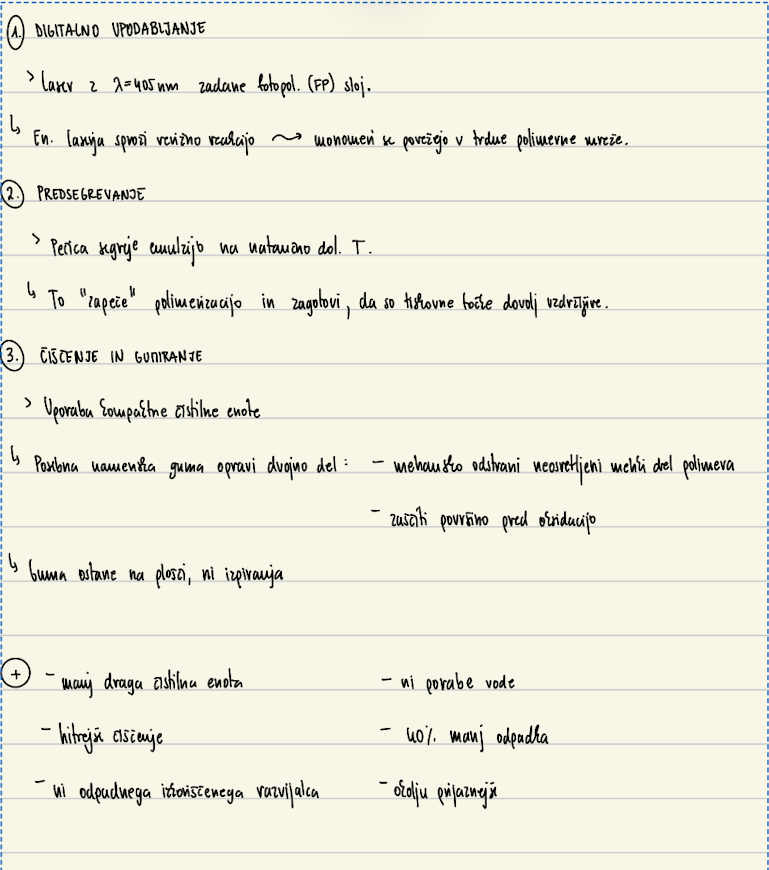 1. DIGITALNO UPODABLJANJE
> Laser z λ=405nm zadane fotopol. (FP) sloj.
↳ En. laserja sproži verižno reakcijo ⇝ monomeri se povežejo v trdne polimerne mreže.
2. PREDSEGREVANJE
> Pečica segreje emulzijo na natančno dol. T.
↳ To "zapeče" polimerizacijo in zagotovi, da so tiskovne točke dovolj vzdržljive.
3. ČIŠČENJE IN GUMIRANJE
> Uporaba kompaktne čistilne enote
↳ Posebna namenska guma opravi dvojno del: – mehansko odstrani neosvetljeni mehki del polimera
– zaščiti površino pred oksidacijo
↳ Guma ostane na plošči, ni izpiranja
+ – manj draga čistilna enota – ni porabe vode
– hitrejše čiščenje – 40% manj odpadka
– ni odpadnega iztrošenega razvijalca – okolju prijaznejše